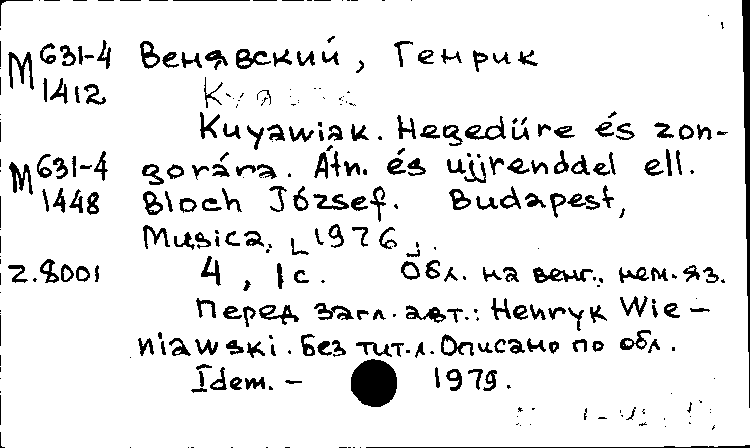 М 631-4
1412
М 631-4
1448
Z.8001
Венявский, Генрик
Kuyawiak. Hegedűre és zon-
gorára. Átn. és ujjrenddel ell.
Bloch József. Budapest,
Musica, [1976].
4, 1 с. Обл. на венг., нем. яз.
Перед загл. авт.: Henryk Wie-
niawski. Без тит. л. Описано по обл.
Idem. – 1979.